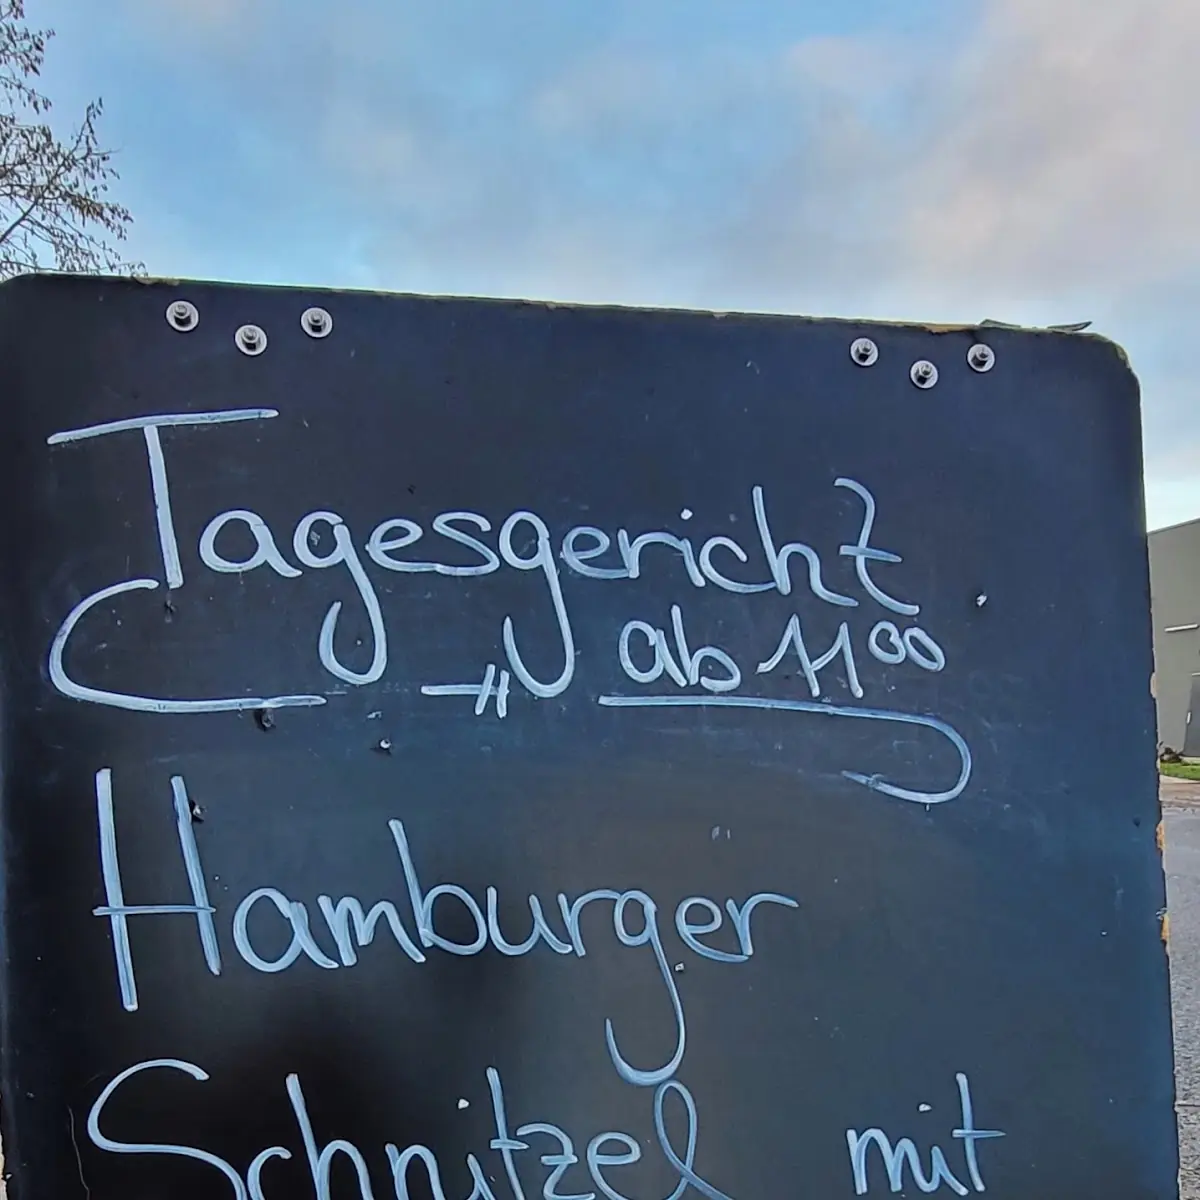 Tagesgericht
ab 11⁰⁰
Hamburger
Schnitzel mit